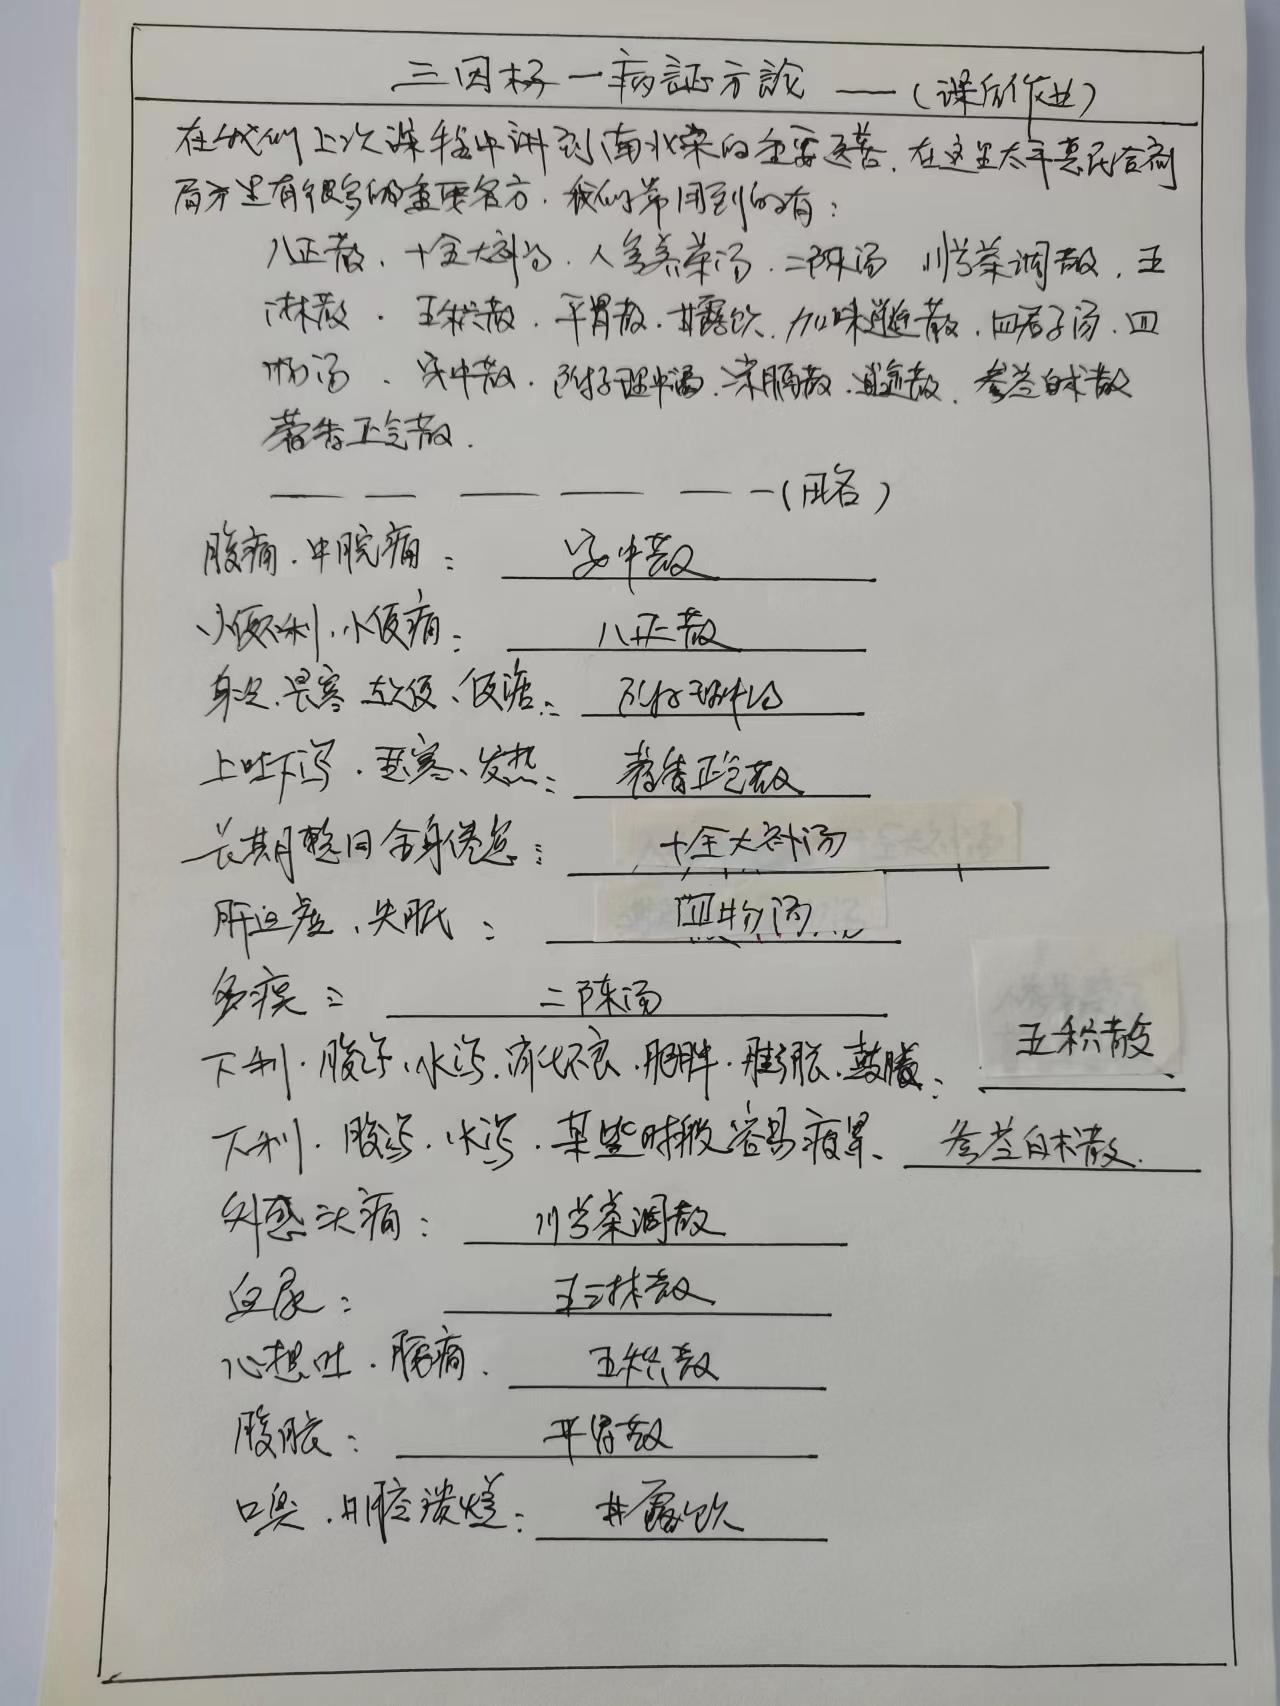 三因极一病证方论 —— (课后作业)
在我们上次课程中讲到南北宋的重要医著，在这里太平惠民合剂
局方里有很多的重要名方，我们常用到的有：
八正散、十全大补汤、人参养荣汤、二陈汤 川芎茶调散、五
淋散、五积散、平胃散、甘露饮、加味逍遥散、四君子汤、四
物汤、安中散、附子理中汤、凉膈散、逍遥散、参苓白术散
藿香正气散。
—— —— —— —— —— —(略)
腹痛、中脘痛： 安中散
小便不利，小便痛： 八正散
身冷、畏寒 便、便溏： 附子理中汤
上吐下泻、恶寒、发热： 藿香正气散
长期整日全身倦怠： 十全大补汤
肝血虚、失眠： 四物汤
多痰： 二陈汤
下利、腹泻、水泻、消化不良、肥胖、膨胀、鼓胀： 五积散
下利、腹泻、水泻、某些时候容易疲累、 参苓白术散
外感头痛： 川芎茶调散
血尿： 五淋散
心想吐、胸痛、 五积散
腹胀： 平胃散
口臭、口腔溃疡： 甘露饮